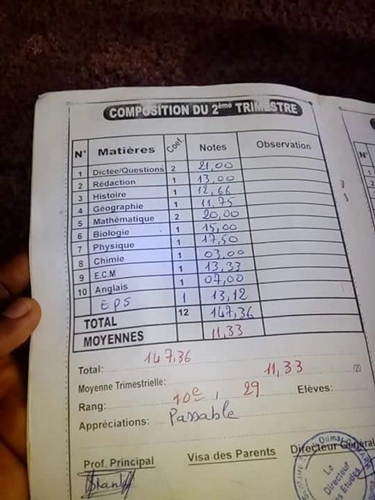 COMPOSITION DU 2ème TRIMESTRE
N° Matières Coef. Notes Observation
1 Dictée/Questions 2 21,00
2 Rédaction 1 13,00
3 Histoire 1 12,66
4 Géographie 1 11,75
5 Mathématique 2 20,00
6 Biologie 1 15,00
7 Physique 1 17,50
8 Chimie 1 03,00
9 E.C.M 1 13,33
10 Anglais 1 07,00
EPS 1 13,12
TOTAL 12 147,36
MOYENNES 11,33
Total: 147,36
Moyenne Trimestrielle: 11,33 /20
Rang: 10e / 29 Elèves:
Appréciations: Passable
Prof. Principal Visa des Parents Directeur Général
Le
Directeur
Etudes